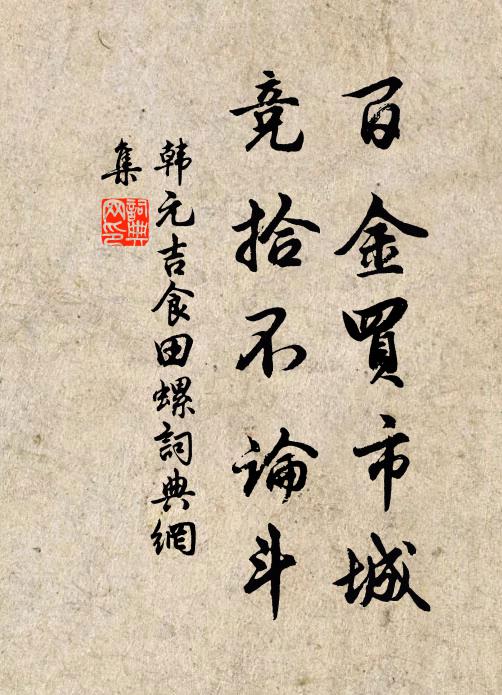 百金買市城
竞拾不論斗
韩元吉食田螺詞典網
集
詞典
网印